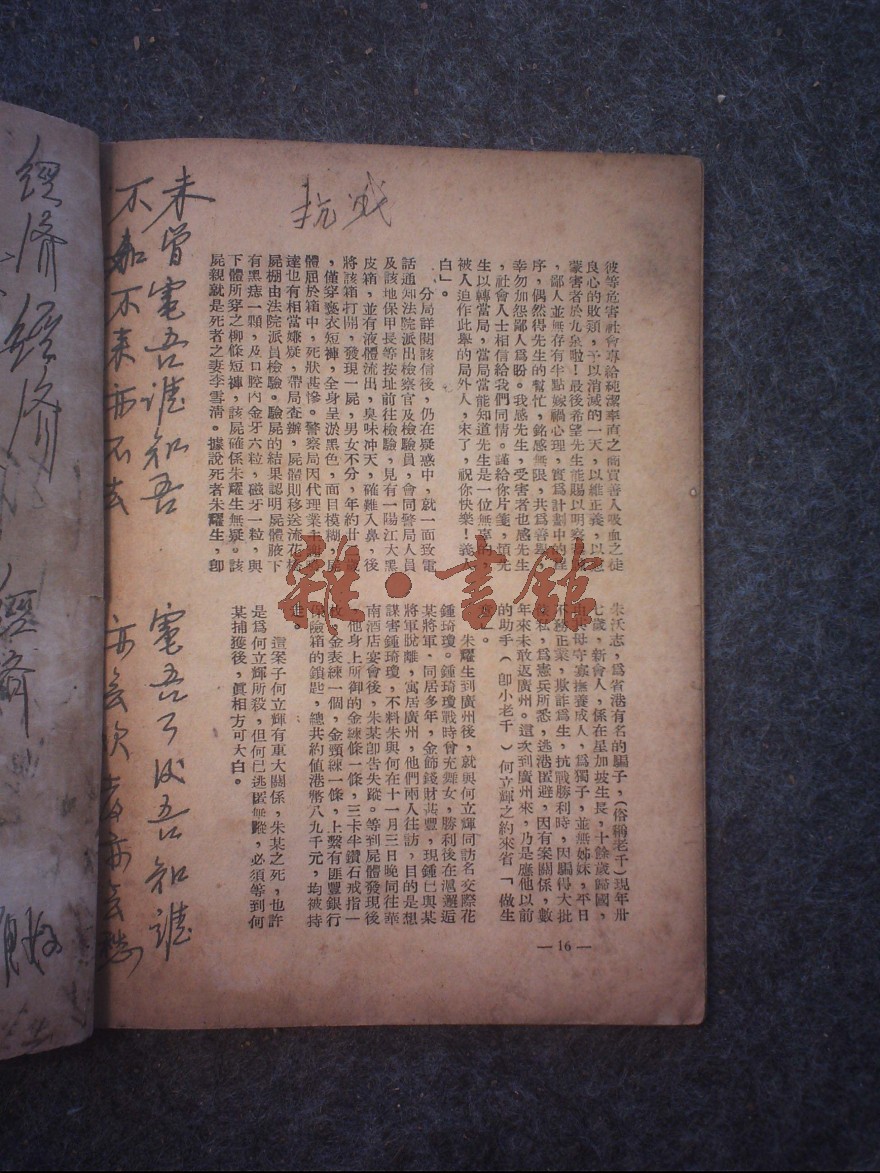 彼等危害社會專給純潔率直之商賈善人吸血之徒
良心的敗類,予以消滅的一天,以維正義,以慰
蒙害者於九泉啦!最後希望先生能賜以明察,
,鄙人並無存有半點嫁禍心理,實爲計劃中的程
序,偶然得先生的幫忙,銘感無限,共爲善舉,
幸勿加怨鄙人爲盼。我感先生,受害者也感先生
,社會人士相信給我們同情。謹給你片箋,煩先
生以轉當局,當局當能知道先生是一位無辜的,
被人迫作此舉的局外人,末了,祝你快樂!義人
白」。
分局詳閱該信後,仍在疑惑中,就一面致電
話通知法院派出檢察官及檢驗員,會同警局人員
及該地保甲長等按址前往檢驗,見有一陽江大黑
皮箱,並有液體流出,臭味冲天,確難入鼻,後
將該箱打開,發現一屍,男女不分,年約廿
,僅穿褻衣短褲,全身呈淤黑色,面目模糊,屍
體屈於箱中,死狀甚慘。警察局因代理業主
達也有相當嫌疑,帶局查辦,屍體則移送流花橋
屍棚由法院派員檢驗。驗屍的結果認明屍體腋下
有黑痣一顆,及口腔內金牙六粒,磁牙一粒,與
下體所穿之柳條短褲,該屍確係朱耀生無疑。該
屍親就是死者之妻李雪清。據說死者朱耀生,卽
朱沃志,爲省港有名的騙子,(俗稱老千)現年卅
七歲,新會人,係在星加坡生長,十餘歲歸國,
由其母守寡撫養成人,爲獨子,並無姊妹,平日
不務正業,欺詐爲生,抗戰勝利時,因騙得大批
私,爲憲兵所悉,逃港匿避,因有案關係,數
年來未敢返廣州。這次到廣州來,乃是應他以前
的助手(卽小老千)何立輝之約來省「做生
」。
朱耀生到廣州後,就與何立輝同訪名交際花
鍾琦瓊。鍾琦瓊戰時曾充舞女,勝利後在滬邂逅
某將軍,同居多年,金飾錢財甚豐,現鍾已與某
將軍脫離,寓居廣州,他們兩人往訪,目的是想
謀害鍾琦瓊,不料朱與何在十一月三日晚同往華
南酒店宴會後,朱某卽吿失蹤。等到屍體發現後
,他身上所御的金練條一條,三卡半鑽石戒指一
枚,金表練一個,金頸練一條,上繫有匯豐銀行
保險箱的鎖匙,總共約値港幣八九千元,均被持
走。
這案子何立輝有東大關係,朱某之死,也許
是爲何立輝所殺,但何已逃匿無蹤,必須等到何
某捕獲後,眞相方可大白。
—16—
抗戰
未曾電吾誰知吾
不知不來亦不去
電吾了後吾知誰
經濟經濟
經濟
雜·書館